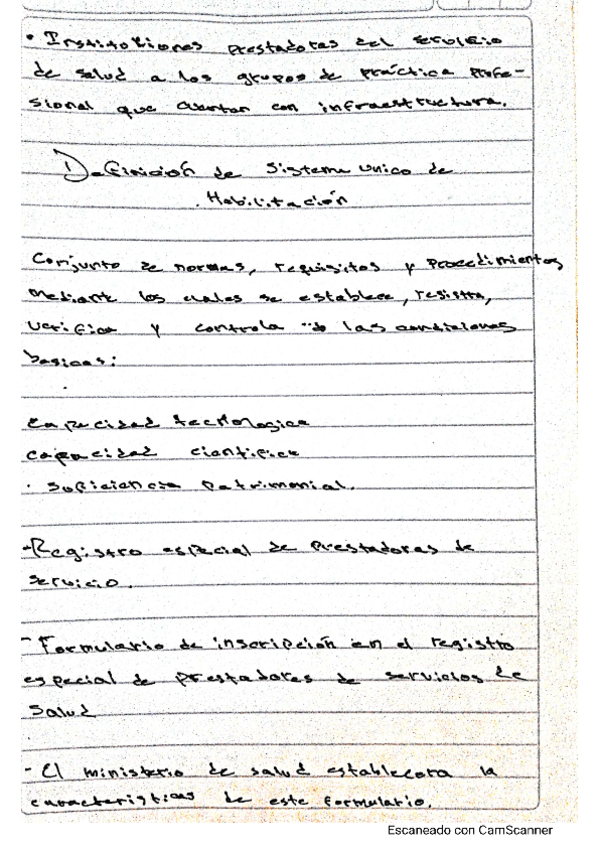 • Instituciones prestadoras del servicio
de salud a los grupos de práctica profe-
sional que cuentan con infraestructura.
Definición de Sistema unico de
Habilitación
Conjunto de normas, requisitos y Procedimientos
mediante los cuales se establece, registra,
verifica y controla las condiciones
basicas:
Capacidad tecnologica
capacidad cientifica
· Suficiencia Patrimonial.
-Registro especial de Prestadoras de
servicio.
- Formulario de inscripción en el registro
especial de prestadores de servicios de
Salud
- El ministerio de salud establecera la
caracteristicas de este Formulario.
Escaneado con CamScanner